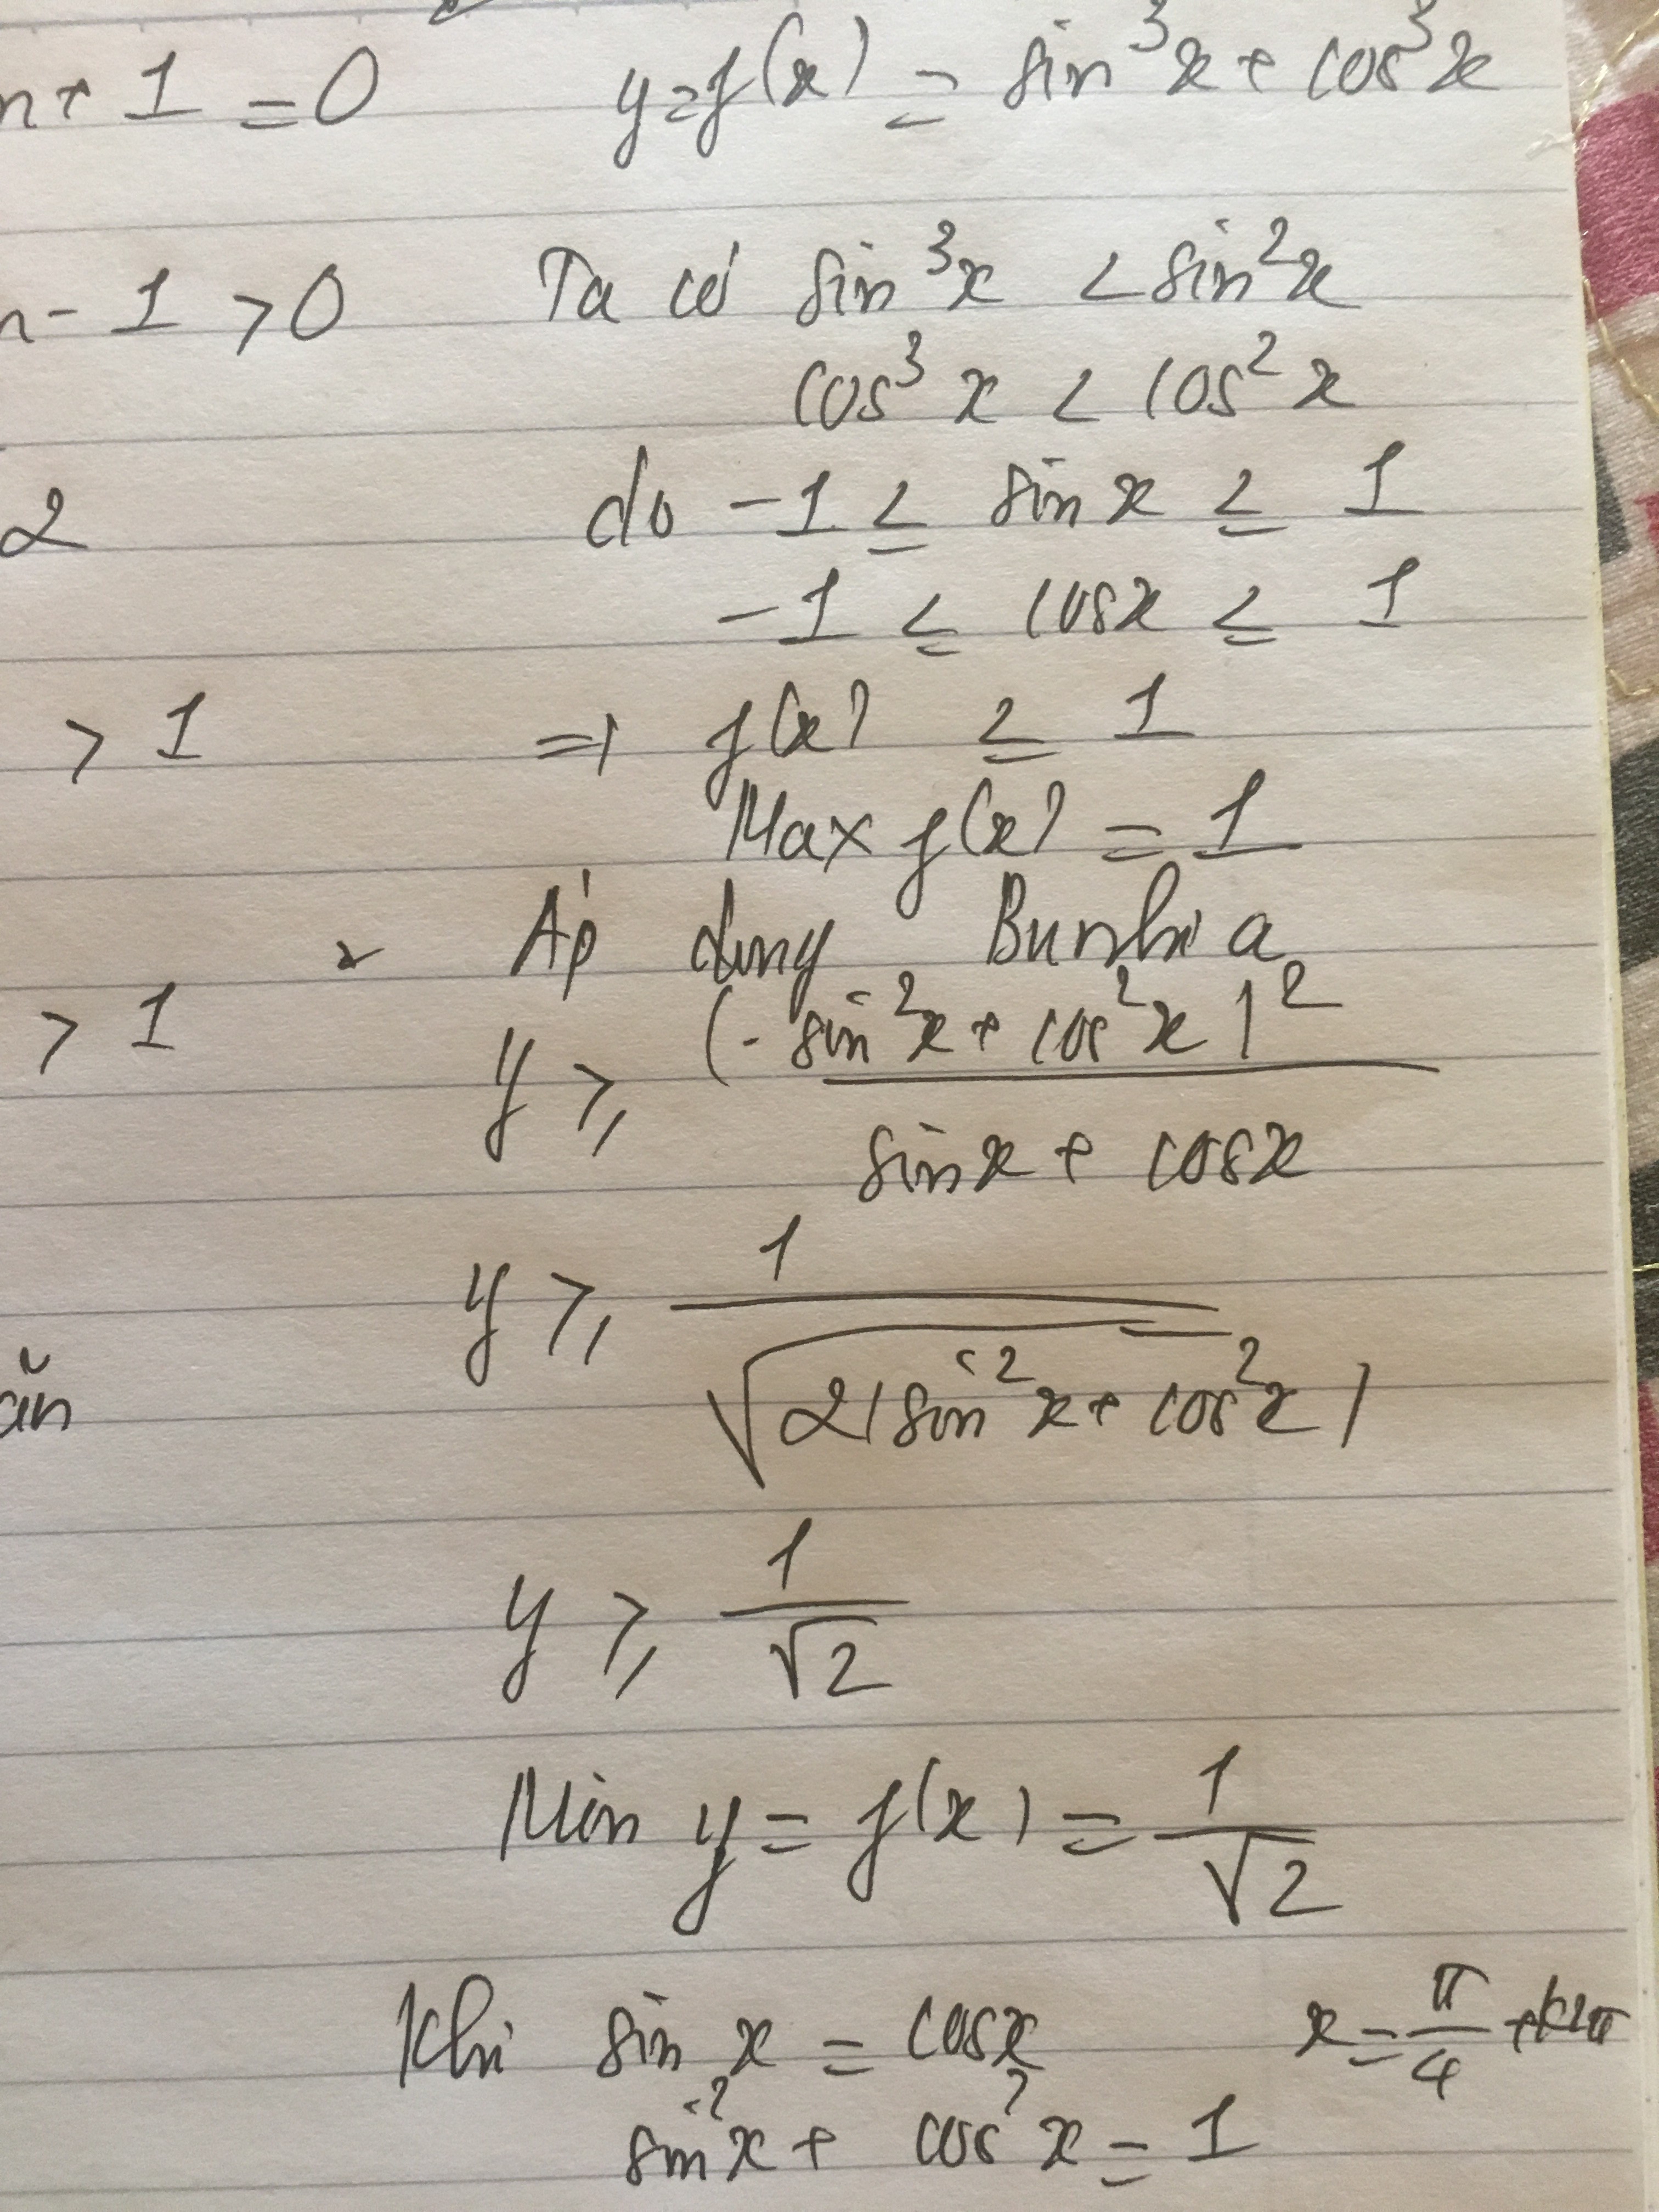 n + 1 = 0
y = f(x) = sin³x + cos³x
n - 1 > 0
Ta có sin³x < sin²x
cos³x < cos²x
2
do -1 ≤ sin x ≤ 1
-1 ≤ cosx ≤ 1
> 1
=> f(x) ≤ 1
Max f(x) = 1
Áp dụng Bunhia
> 1
y ≥ (sin²x + cos²x)² / (sinx + cosx)
y ≥ 1 / √2(sin²x + cos²x)
ăn
y ≥ 1/√2
Min y = f(x) = 1/√2
Khi sin x = cosx x = π/4 + k2π
sin²x + cos²x = 1